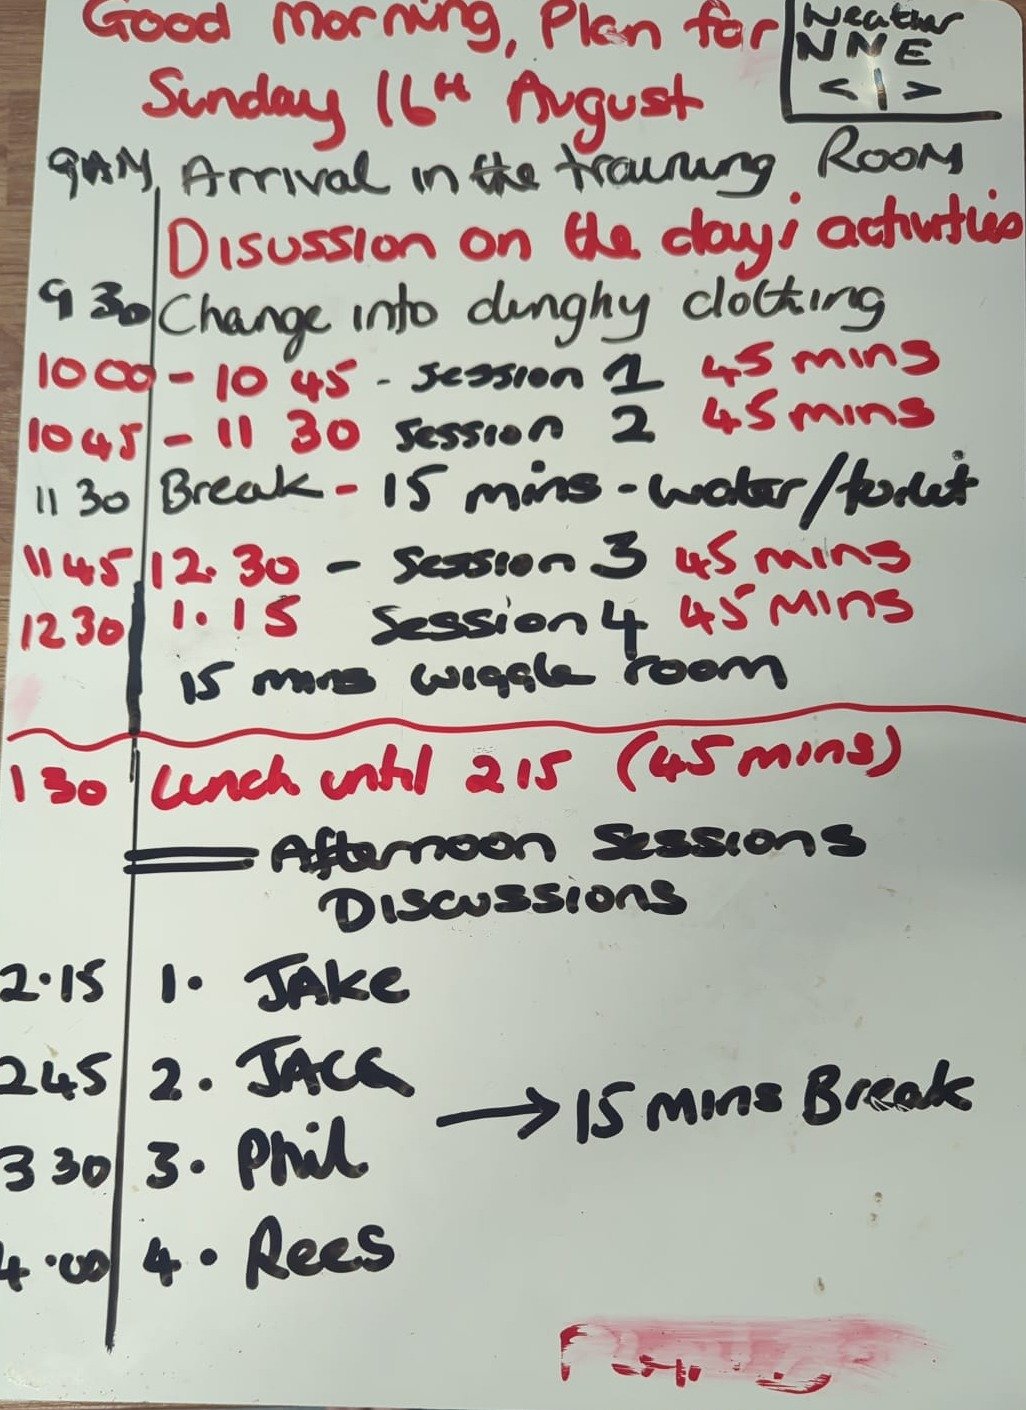 Good Morning, Plan for
Sunday 16th August
Weather
NNE
< | >
9AM, Arrival in the training Room
Disussion on the day's activities
9 30 Change into dinghy clothing
10 00 - 10 45 - Session 1 45 mins
10 45 - 11 30 Session 2 45 mins
11 30 Break - 15 mins - water/toilet
11 45 12.30 - Session 3 45 mins
12 30 1.15 Session 4 45 mins
15 mins wiggle room
1 30 Lunch until 2 15 (45 mins)
Afternoon Sessions
Discussions
2.15 1. JAKE
2 45 2. JACK
→ 15 mins Break
3 30 3. Phil
4.00 4. Rees